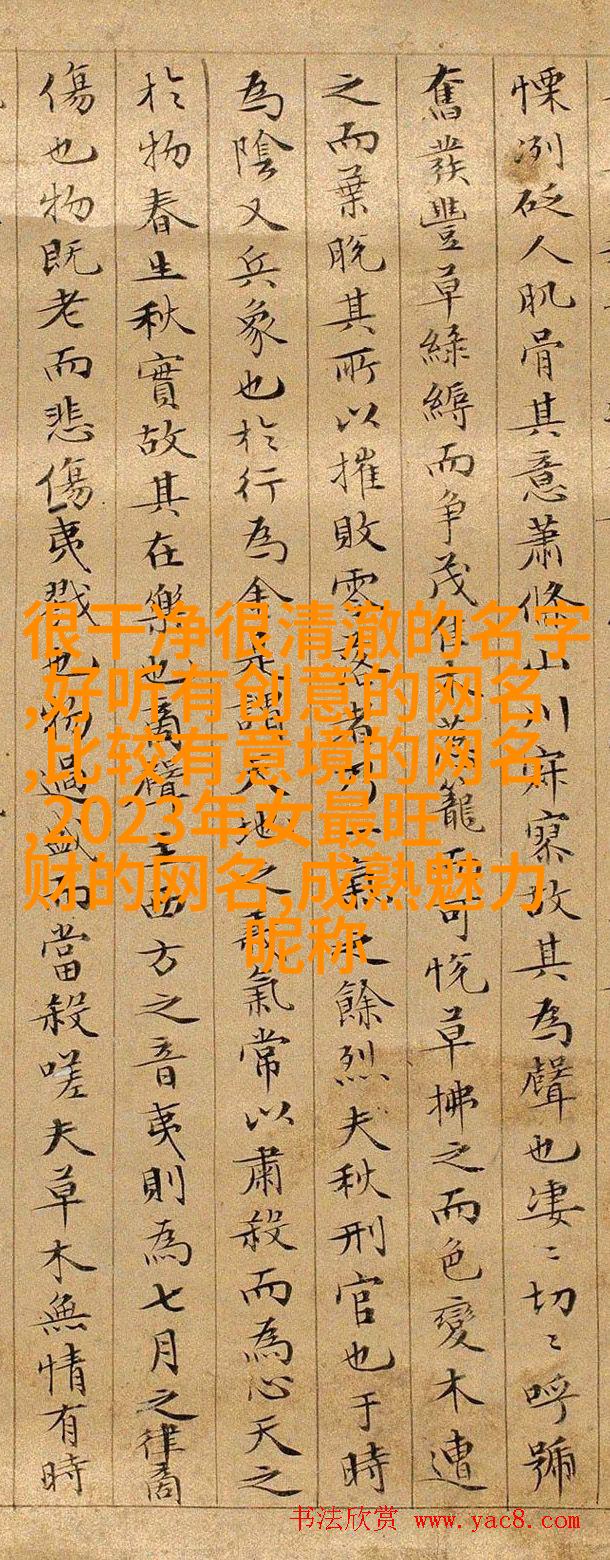 慄冽砭人肌骨其意蕭條山川寂寥故其為聲也凄〻切〻呼號
奮發豐草綠縟而争茂佳木葱籠而可悅草拂之而色變木遭
之而葉脱其所以摧敗零落者乃一氣之餘烈夫秋刑官也于時
為陰又兵象也於行為金是謂天地之義氣常以肅殺而為心天之
於物春生秋實故其在樂也商聲主西方之音夷則為七月之律商
傷也物既老而悲傷夷戮也物過盛而當殺嗟夫草木無情有時
很干净很清澈的名字
,好听有创意的网名
,比较有意境的网名
,2023年女最旺
财的网名,成熟魅力
昵称
书法欣赏 www.yac8.com